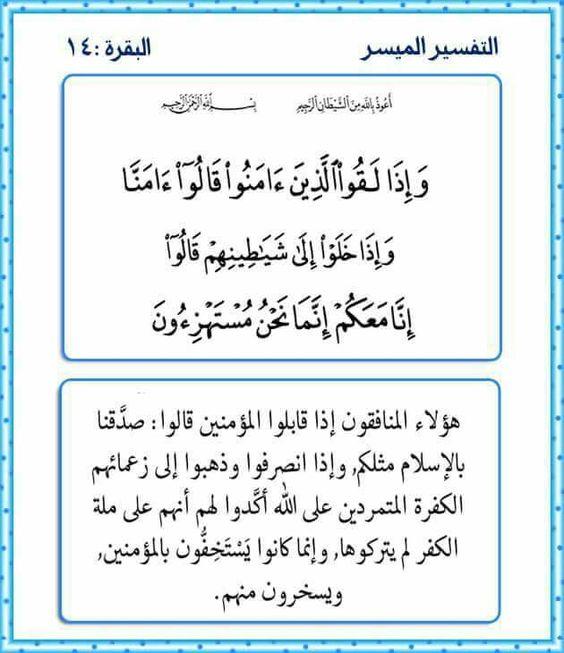 التفسير الميسر البقرة :١٤
أعوذ بالله من الشيطان الرجيم بسم الله الرحمن الرحيم
وَإِذَا لَقُوا۟ ٱلَّذِينَ ءَامَنُوا۟ قَالُوٓا۟ ءَامَنَّا
وَإِذَا خَلَوْا۟ إِلَىٰ شَيَـٰطِينِهِمْ قَالُوٓا۟
إِنَّا مَعَكُمْ إِنَّمَا نَحْنُ مُسْتَهْزِءُونَ
هؤلاء المنافقون إذا قابلوا المؤمنين قالوا: صدَّقنا
بالإسلام مثلكم, وإذا انصرفوا وذهبوا إلى زعمائهم
الكفرة المتمردين على الله أكَّدوا لهم أنهم على ملة
الكفر لم يتركوها, وإنما كانوا يَسْتَخِفُّون بالمؤمنين,
ويسخرون منهم.